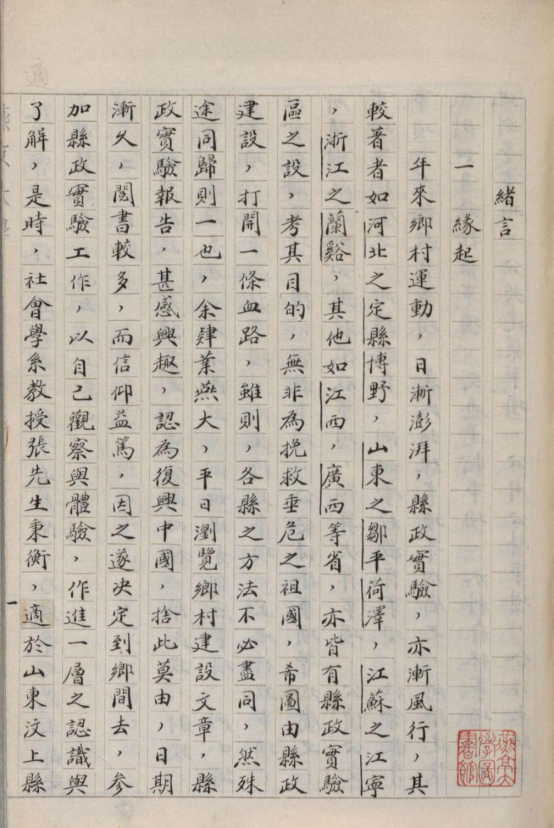 緒言
一　緣起
年來鄉村運動，日漸澎湃，縣政實驗，亦漸風行，其
較著者如河北之定縣博野，山東之鄒平荷澤，江蘇之江寧
，浙江之蘭谿，其他如江西，廣西等省，亦皆有縣政實驗
區之設，考其目的，無非為挽救垂危之祖國，希圖由縣政
建設，打開一條血路，雖則，各縣之方法不必盡同，然殊
途同歸則一也，余肄業燕大，平日瀏覽鄉村建設文章，縣
政實驗報告，甚感興趣，認為復興中國，捨此莫由，日期
漸久，閱書較多，而信仰益篤，因之遂決定到鄉間去，參
加縣政實驗工作，以自己觀察與體驗，作進一層之認識與
了解，是時，社會學系教授張先生秉衡，適於山東汶上縣
燕京大學圖書館